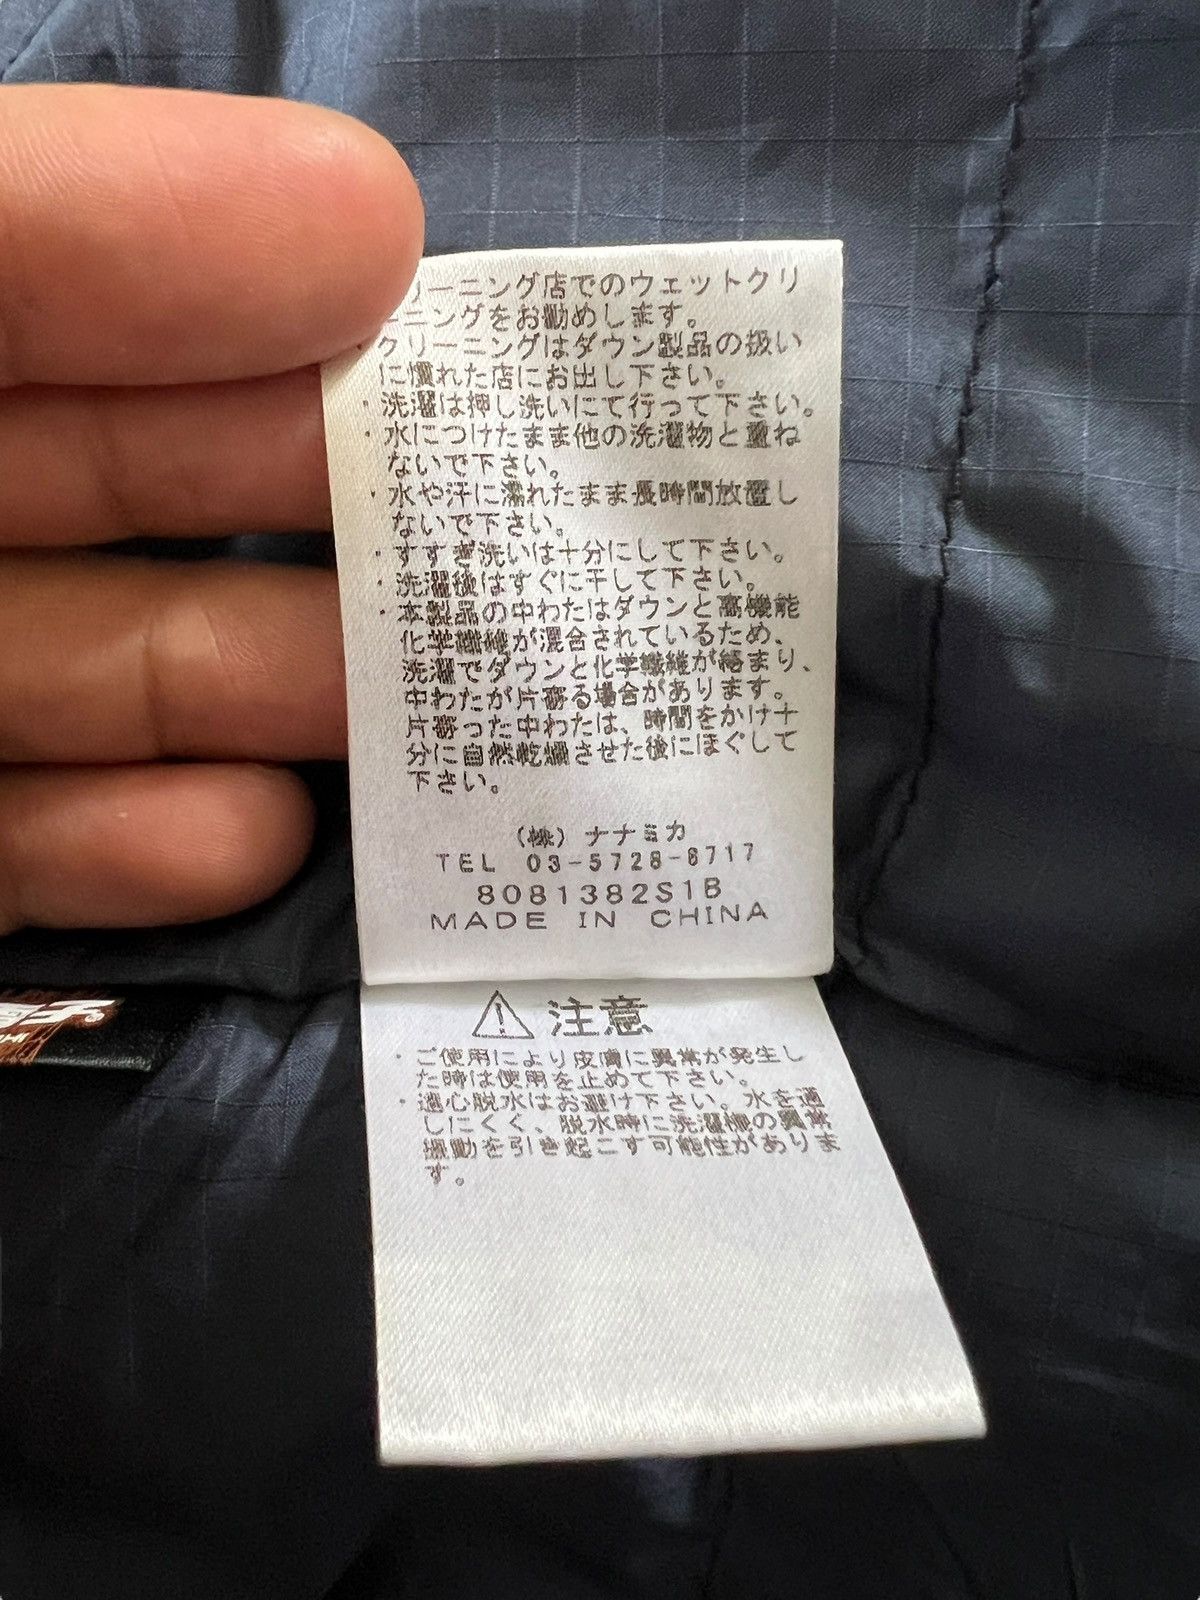 リーニング店でのウェットクリ
ニングをお勧めします。
クリーニングはダウン製品の扱い
に慣れた店にお出し下さい。
・洗濯は押し洗いにて行って下さい。
・水につけたまま他の洗濯物と重ね
ないで下さい。
・水や汗に濡れたまま長時間放置し
ないで下さい。
・すすぎ洗いは十分にして下さい。
・洗濯後はすぐに干して下さい。
・本製品の中わたはダウンと高機能
化学繊維が混合されているため、
洗濯でダウンと化学繊維が絡まり、
中わたが片寄る場合があります。
片寄った中わたは、時間をかけ十
分に自然乾燥させた後にほぐして
下さい。
(株) ナナミカ
TEL 03-5728-6717
8081382S1B
MADE IN CHINA
注意
・ご使用により皮膚に異常が発生し
た時は使用を止めて下さい。
・遠心脱水はお避け下さい。水を通
しにくく、脱水時に洗濯機の異常
振動を引き起こす可能性がありま
す。